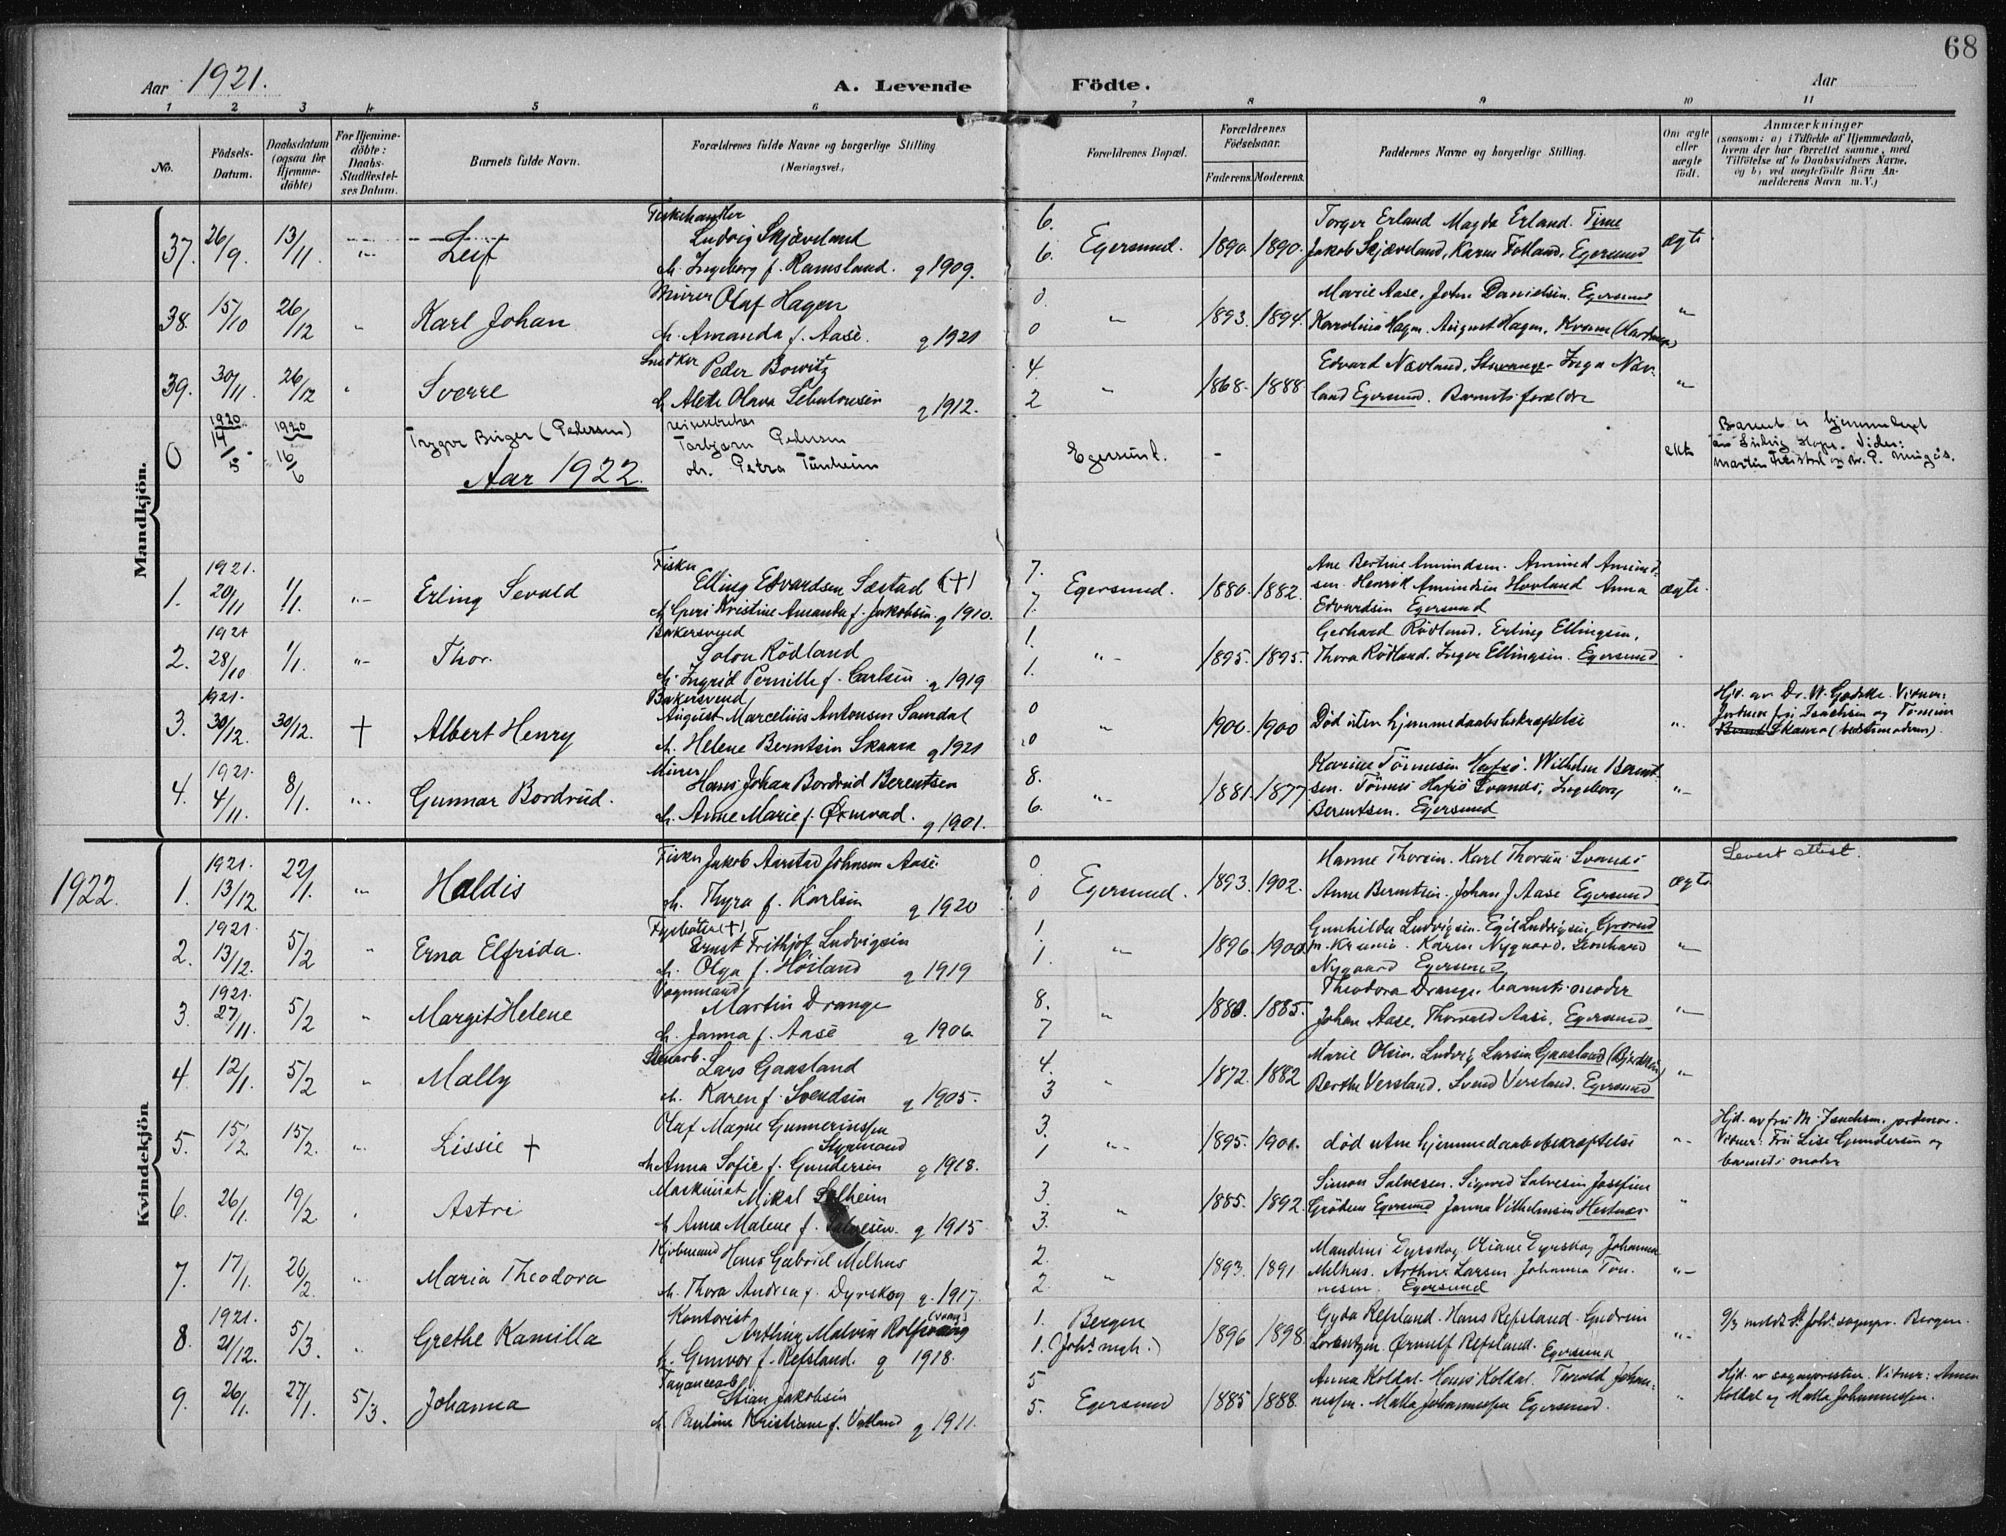 68
Aar 1921. A. Levende Födte. Aar
1 2 3 4 5 6 7 8 9 10 11
No. Födsels-Datum. Daabsdatum (ogsaa for Hjemme-döbte) For Hjemme-döbte: Daabs-Stadfæstel-ses Datum. Barnets fulde Navn. Forældrenes fulde Navne og borgerlige Stilling (Næringsvei.) Forældrenes Bopæl. Forældrenes Födselsaar. Faderens. Moderens. Faddernes Navne og borgerlige Stilling. Om ægte eller uægte födt. Anmærkninger (saasom: a) i Tilfælde af Hjemmedaab, hvem der har forrettet samme, med Tilföielse af to Daabsvidners Navne, og b) ved uægtefödte Börn An-melderens Navn m. V.)
Mandkjön.
Fiskehandler 6. Torger Erland Magda Erland. Time
37. 26/9. 13/11. Leif Ludvig Skjæveland Egersund. 1890. 1890. Jakob Skjæveland, Karen Fotland, Egersund ægte
h. Ingeborg f. Ramsland. g 1909. 6.
Murer Olaf Hagen 0. Marie Aase, John Danielsen. Egersund
38. 15/10 26/12 Karl Johan " 1893. 1894. Karolina Hagen. August Hagen. "
h. Amanda f. Aase. g 1921 0
Snedker Peder Bowitz 4. Edvard Nævland, Stavanger. Inga Næv-
39. 30/11. 26/12 Sverre " 1868. 1888. land Egersund. Barnets forældre "
h. Alette Olava g 1912. 2
1920 1920
0 14/5. 16/6 Trygve Birger (Pedersen) Torbjørn Pedersen Egersund. - ekte Barnet er hjemmedøpt
h. Petra Tunheim av Ludvig Hope. Vidner:
Aar 1922.
1921. Fisker 7. Ane Bertine Amundsen. Amund Amund-
1. 20/11 1/1. Erling Sevald Elling Edvardsen Sæstad (+) Egersund. 1880. 1882. sen. Henrik Amundsen Hovland Anna ægte.
h. Kristine Amanda f. Jakobsen. g 1910. 7. Edvardsen Egersund
1921 Bakersvend 1. Gerhard Rødland. Erling Ellingsen,
2. 28/10 1/1. Thor. Solon Rødland " 1895. 1895. Thora Rødland. Inger Ellingsen. Egersund
h. Ingrid Pernille f. Carlsen. g 1919 1.
1921. Bakersvend 0 Hjd. av Dr. W. Vidner:
3. 30/12. 30/12. + Albert Henry August Marcelius Antonsen Samdal " 1900. 1900 Død uten hjemmedaabsbekræftelse " Jordmor fru Isachsen og
h. Helene Berntsen Skaara g 1921 0 Skaara (bedstemoderen).
1921. Murer 8. Karine Tönnesen Wilhelm Berent-
4. 4/11. 8/1. Gunnar Bordvud. Hans Johan Bordvud Berentsen " 1881. 1877 sen. Ingeborg "
h. Anne Marie f. g 1901. 6. Berentsen. Egersund
Kvindekjön
1921. Fisker Jakob Aarstad Johnsen Aase 0. Hanne Thorsen. Karl Thorsen Levert attest.
1922. 1. 13/12 22/1. Haldis Egersund. 1893. 1902. Anne Berentsen. Johan J Aase Egersund ægte
h. Thyra f. Karlsen g 1920 0
1921. Fyrbøter (+) 1 Gunhilda Ludvigsen. Egil Ludvigsen,
2. 13/12. 5/2 Erna Elfrida. Ernst Frithjof Ludvigsen " 1896. 1900 Karen Nygaard. Leonhard "
h. Olga f. Høiland g 1919 1. Nygaard Egersund
1921. Vognmand 8. Theodora Drange. barnets moder
3. 27/11. 5/2 Margit Helene Martin Drange " 1880. 1885. Johan Aase, Thorvald Aase. Egersund "
h. Janna f. Aase g 1906. 7
Stenarb. 4. Marie Olsen. Ludvig Larsen Gaasland
4 12/1. 5/2 Mally Lars Gaasland " 1872. 1882 Berthe Versland. Svend Versland. Egersund "
h. Karen f. Svendsen g 1905. 3
Olaf Magne Gunnerinssen 3. Hjd. av fru M. Isachsen. jordmor.
5. 15/2. 15/2. Lissie + Styrmand " 1895. 1901. død uten hjemmedaabsbekræftelse " Vidner: Fru Lise Gundersen og
h. Anna Sofie f. Gundersen g 1918. 1 barnets moder
Maskinist Mikal Solheim 3. Simon Salvesen. Sigurd Salvesen Josefine
6. 26/1. 19/2. Astri " 1885. 1892. Grødem Egersund Janna Vilhelmsen "
h. Anna Malene f. Salvesen. g 1915 3.
Kjøbmand Hans Gabriel Melhus 2. Mandius Dyrskog Oliane Dyrskog Johanna
7. 17/1. 26/2. Maria Theodora " 1893. 1891. Melhus. Arthur Larsen. Johanna Tön- "
h. Thora Andrea f. Dyrskog g. 1917. 2. nesen. Egersund
1921. Kontorist 1. Bergen Gyda Refsland. Hans Refsland. Gudrun
8. 21/12. 5/3. Grethe Kamilla Malvin Rolfsvaag 1. (Joh's mgh.) 1896 1898. Lorentzen. Ørnulf Refsland. Egersund " 9/3 meldt St Joh's sognepr. Bergen.
h. Gunvor f. Refsland. g 1918.
Fayancearb. 5 Anna Koldal. Hans Koldal. Johan- Hjd. av sognepresten. Vidner: Anna
9. 26/1. 27/1. 5/3. Johanna Stian Jakobsen Egersund 1885 1888. nessen. Malla Johannessen Egersund. " Koldal og Malla Johannessen.
h. Pauline Kristiane f. Vatland g 1911. 5.